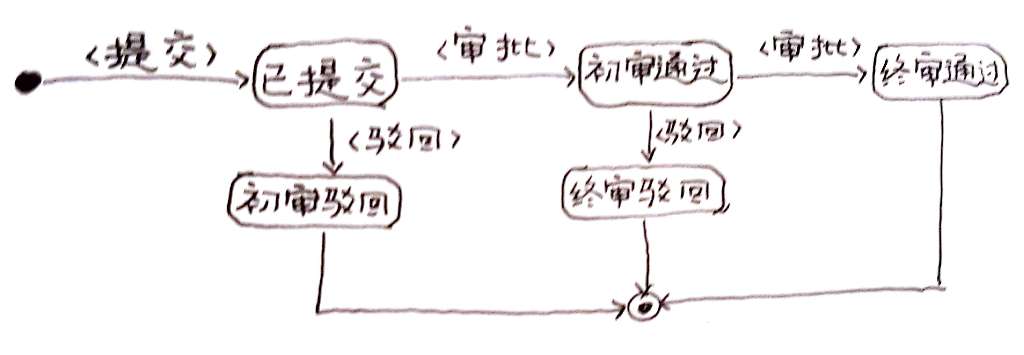 <提交>
已提交
<审批>
初审通过
<审批>
终审通过
<驳回>
<驳回>
初审驳回
终审驳回